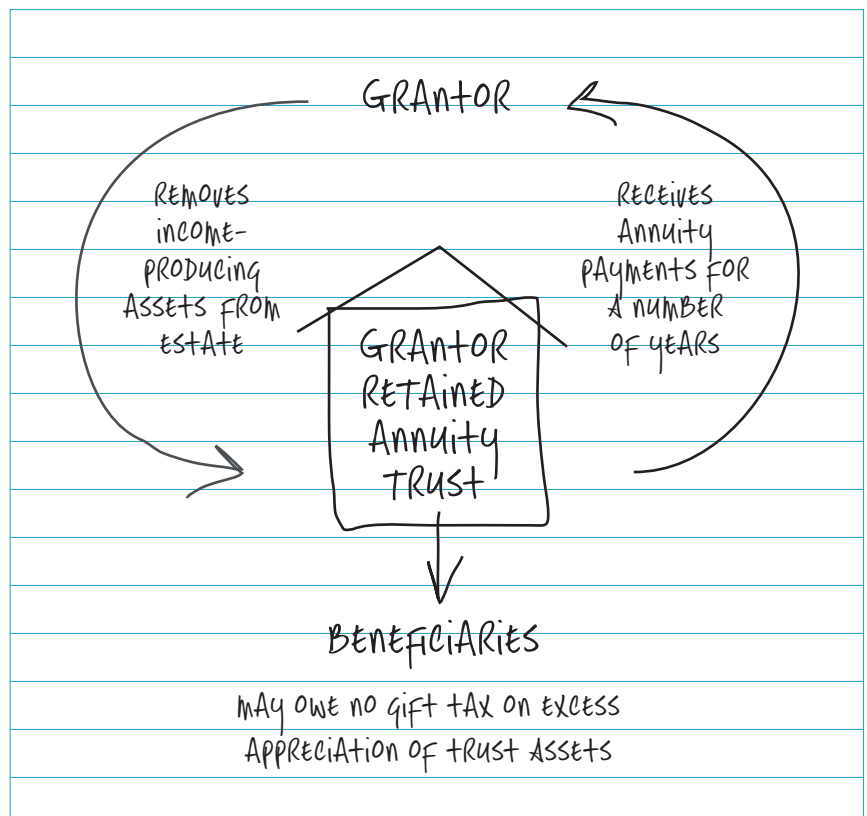 GRANTOR
REMOVES
INCOME-
PRODUCING
ASSETS FROM
ESTATE
RECEIVES
ANNUITY
PAYMENTS FOR
A NUMBER
OF YEARS
GRANTOR
RETAINED
ANNUITY
TRUST
BENEFICIARIES
MAY OWE NO GIFT TAX ON EXCESS
APPRECIATION OF TRUST ASSETS